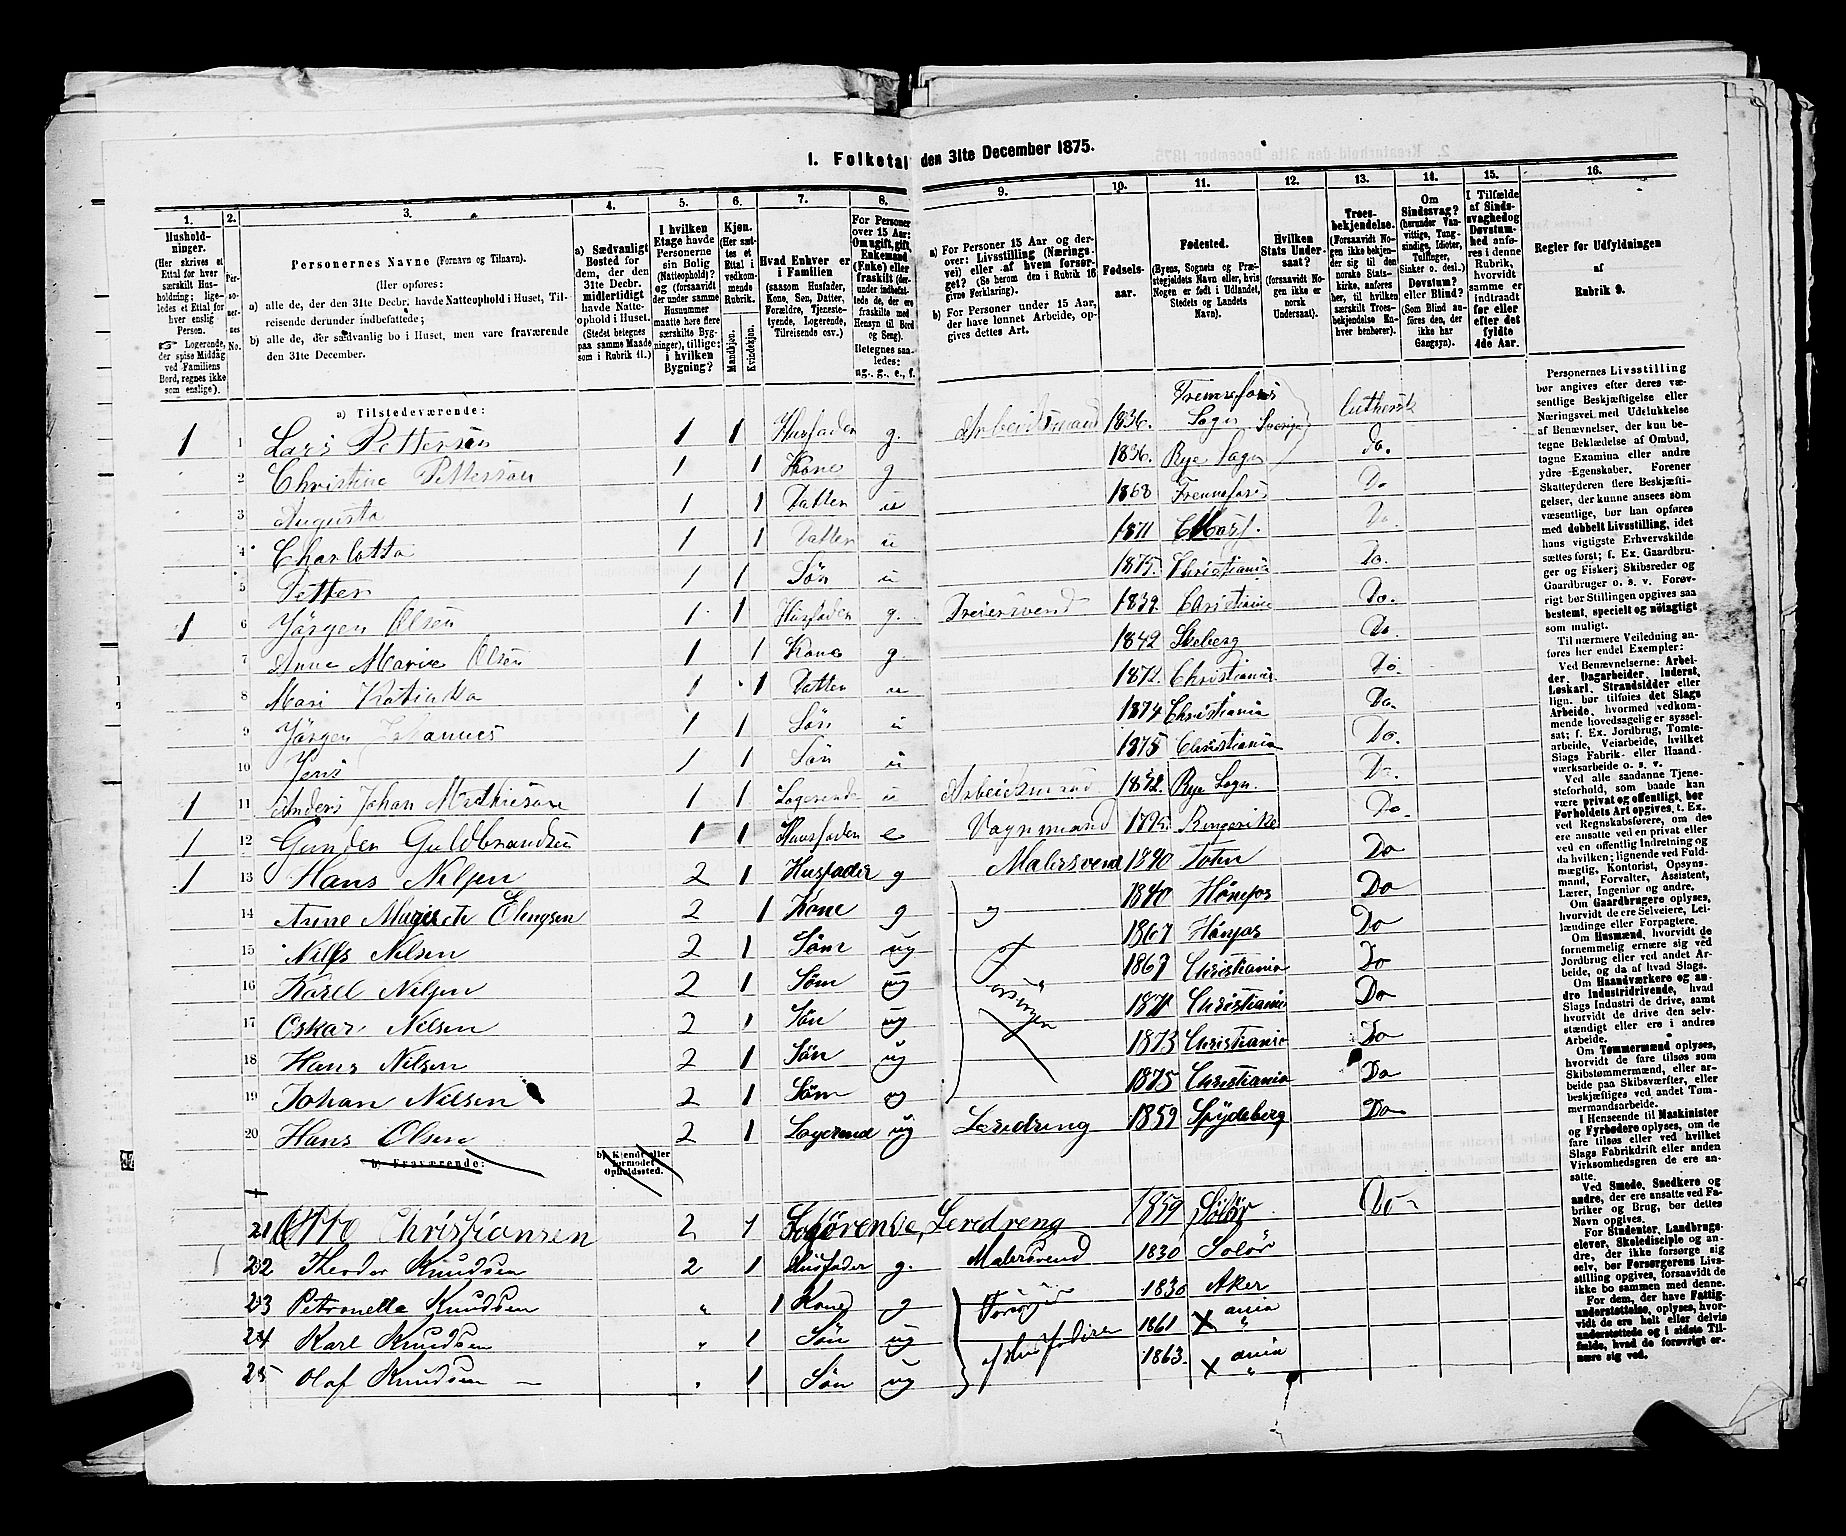 1. Folketal den 31te December 1875.
1. 2. 3. 4. 5. 6. 7. 8. 9. 10. 11. 12. 13. 14. 15. 16.
Husholdninger.
(Her skrives et Ettal for hver særskilt Husholdning; ligeledes et Ettal for hver enslig Person.
☞ Logerende, der spise Middag ved Familiens Bord, regnes ikke som enslige).
Personernes No.
Personernes Navne (Fornavn og Tilnavn).
(Her opføres:
a) alle de, der den 31te Decbr. havde Natteophold i Huset, Tilreisende derunder indbefattede;
b) alle de, der sædvanlig bo i Huset, men vare fraværende den 31te December.
a) Sædvanligt Bosted for dem, der den 31te Decbr. midlertidigt havde Natteophold i Huset. (Stedet betegnes paa samme Maade som i Rubrik 11.)
I hvilken Etage havde Personerne sin Bolig (Natteophold)? og (forsaavidt der under samme Husnummer maatte høre flere særskilte Bygninger), tillige: i hvilken Bygning?
Kjøn. (Her sættes et Ettal i vedkommende Rubrik.
Mandkjøn. Kvindekjøn.
Hvad Enhver er i Familien
(saasom Husfader, Kone, Søn, Datter, Forældre, Tjenestetyende, Logerende, Tilreisende osv.)
For Personer over 15 Aar: Om ugift, gift, Enkemand (Enke) eller fraskilt (derunder indbefattede de, der ere fraskilte med Hensyn til Bord og Seng). Betegnes saaledes: ug., g., e., f.
a) For Personer 15 Aar og derover: Livsstilling (Næringsvei) eller af hvem forsørget? (Se herom den i Rubrik 16 givne Forklaring).
b) For Personer under 15 Aar, der have lønnet Arbeide, opgives dettes Art.
Fødselsaar.
Fødested.
(Byens, Sognets og Præstegjeldets Navn eller, hvis Nogen er født i Udlandet, Stedets og Landets Navn).
Hvilken Stats Undersaat? (forsaavidt Nogen ikke er norsk Undersaat).
Troesbekjendelse. (Forsaavidt Nogen ikke bekjender sig til den norske Statskirke, anføres her, til hvilken særskilt Troesbekjendelse Enhver henhører).
Om Sindssvag? (herunder Vanvittige, Tungsindige, Idioter, Tullinger, Sinker o. desl.) Døvstum? eller Blind? (Som Blind anføres den, der ikke har Gangsyn).
I Tilfælde af Sindssvaghed og Døvstumhed anføres i denne Rubrik, hvorvidt samme er indtraadt før eller efter det fyldte 4de Aar.
Regler for Udfyldningen
af
Rubrik 9.
a) Tilstedeværende:
1 1 Lars Pettersen 1 1 Husfader g. Arbeidsmand 1836. Sogn Sverige luthersk
2 Christine Pettersen 1 1 Kone g 1836. Rye Sogn Do.
3 Augusta 1 1 Datter u 1868 Do
4 Charlotta 1 1 Datter u 1871 Do.
5 Petter 1 1 Søn u 1875. Christiania Do.
1 6 Jørgen Olsen 1 1 Husfader g. Dreiersvend 1839. Christiania Do.
7 Anne Marie Olsen 1 1 Kone g 1842 Do
8 Mari 1 1 Datter u 1872. Christiania Do
9 Jørgen Johannes 1 1 Søn u 1874 Christiania Do.
10 Jens 1 1 Søn u 1875 Christiania Do.
1 11 Anders Johan Mathiesen 1 1 Logerende u Arbeidsmand Rye Sogn Do.
1 12 Gunder Guldbrandsen 1 1 Huusfader e Vognmand 1795. Ringerike Do.
1 13 Hans Nilsen 2 1 Husfader g Malersvend Do
14 Anne 2 1 Kone g 1840 Hønefos Do
15 Nills Nilsen 2 1 Sønn ug 1867 Hønefos Do
16 Karel Nilsen 2 1 Sønn ug Christiania Do
17 Oskar Nilsen 2 1 Søn ug 1871 Christiania Do
18 Hans Nilsen 2 1 Søn ug 1873 Christiania Do
19 Johan Nilsen 2 1 Sønn ug 1875 Christiania Do
20 Hans Olsen 2 1 Logerend ug Leredreng 1859 Spydeberg Do
b) Fraværende: b) Kjendt eller formodet Opholdssted.
21 Otto Christiansen 2 1 Logørende, Leredreng 1859 Solør Do
22 Theodor Knudsen 2 1 Husfader g. Malersvend 1830 Solør
23 Petronella Knudsen " 1 Kone g 1830 Aker
24 Karl Knudsen " 1 Søn ug af Husfaderen 1861 Xania "
25 Olaf Knudsen " 1 Søn ug 1863. Xania "
Personernes Livsstilling bør angives efter deres væsentlige Beskjæftigelse eller Næringsvei med Udelukkelse af Benævnelser, der kun betegne Beklædelse af Ombud, tagne Examina eller andre ydre Egenskaber. Forener Skatteyderen flere Beskjæftigelser, der kunne ansees som væsentlige, bør han opføres med dobbelt Livsstilling, idet hans vigtigste Erhvervskilde sættes først; f. Ex. Gaardbruger og Fisker; Skibsreder og Gaardbruger o. s. v. Forøvrigt bør Stillingen opgives saa bestemt, specielt og nøiagtigt som muligt.
Til nærmere Veiledning anføres her endel Exempler:
Ved Benævnelserne: Arbeider, Dagarbeider, Inderst, Løskarl, Strandsidder eller lign. bør tilføies det Slags Arbeide, hvormed vedkommende hovedsagelig er sysselsat; f. Ex. Jordbrug, Tomtearbeide, Veiarbeide, hvilket Slags Fabrik- eller Haandværksarbeide o. s. v.
Ved alle saadanne Tjenesteforhold, som baade kan være privat og offentligt, bør Forholdets Art opgives, f. Ex. ved Regnskabsførere, om de ere ansatte ved en privat eller ved en offentlig Indretning og da hvilken; lignende ved Fuldmægtig, Kontorist, Opsynsmand, Forvalter, Assistent, Lærer, Ingeniør og andre.
Om Gaardbrugere oplyses, hvorvidt de ere Selveiere, Leilændinge eller Forpagtere.
Om Husmænd, hvorvidt de fornemmelig ernære sig ved Jordbrug eller ved andet Arbeide, og da af hvad Slags.
Om Haandværkere og andre Industridrivende, hvad Slags Industri de drive, samt hvorvidt de drive den selvstændigt eller ere i andres Arbeide.
Om Tømmermænd oplyses, hvorvidt de fare tilsøs som Skibstømmermænd, eller arbeide paa Skibsværfter, eller beskjæftiges ved andet Tømmermandsarbeide.
I Henseende til Maskinister og Fyrbødere oplyses, om de fare tilsøs eller ved hvilket Slags Fabrikdrift eller anden Virksomhedsgren de ere ansatte.
Ved Smede, Snedkere og andre, der ere ansatte ved Fabriker og Brug, bør dettes Navn opgives.
For Studenter, Landbrugselever, Skoledisciple og andre, der ikke forsørge sig selv, bør Forsørgerens Livsstilling opgives, forsaavidt de ikke bo sammen med denne.
For dem, der have Fattigunderstøttelse, oplyses, hvorvidt de ere helt eller delvis understøttede og i sidste Tilfælde, hvad de forøvrigt ernære sig ved.